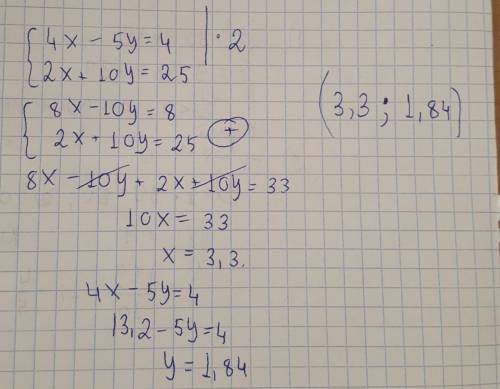 4x - 5y = 4 | · 2
2x + 10y = 25
8x - 10y = 8
2x + 10y = 25 (+)
8x - 10y + 2x + 10y = 33
10x = 33
x = 3,3.
4x - 5y = 4
13,2 - 5y = 4
y = 1,84
(3,3 ; 1,84)